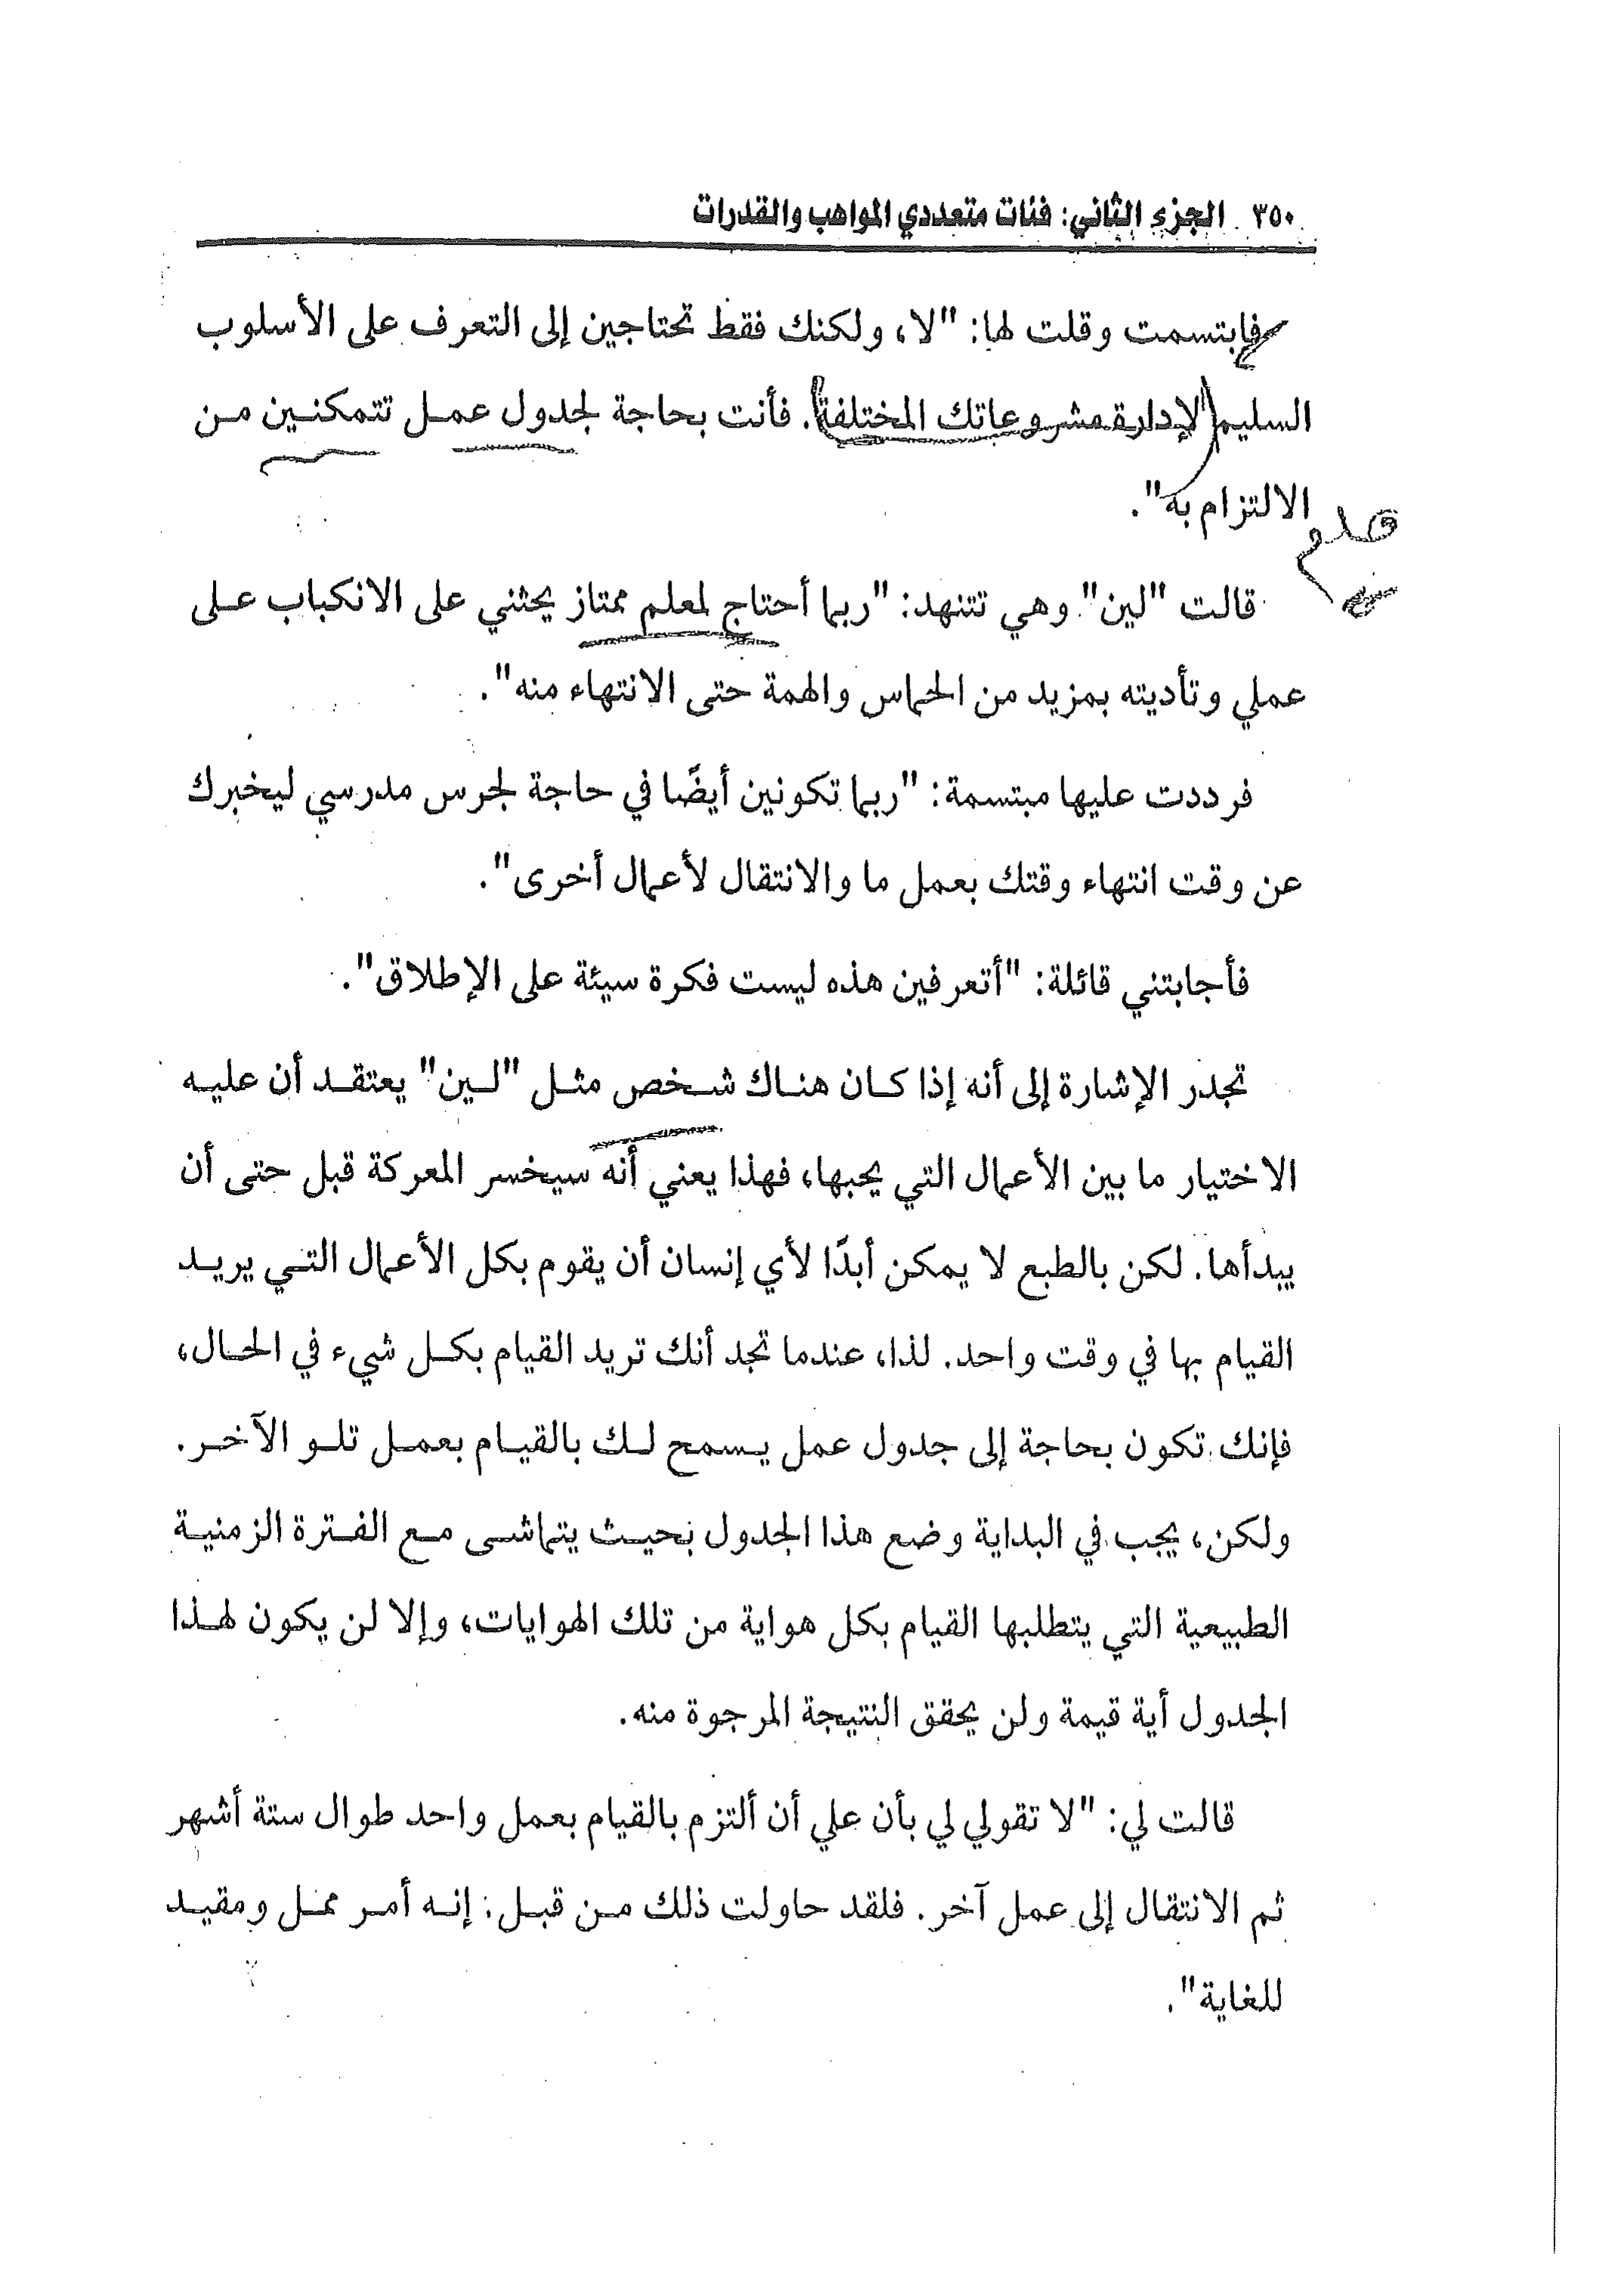 ٣٥٠ الجزء الثاني: فئات متعددي المواهب والقدرات
فابتسمت وقلت لها: "لا، ولكنك فقط تحتاجين إلى التعرف على الأسلوب
السليم لإدارة مشروعاتك المختلفة. فأنت بحاجة لجدول عمل تتمكنين من
الالتزام به".
هام
قالت "لين" وهي تتنهد: "ربما أحتاج لمعلم ممتاز يحثني على الانكباب على
عملي وتأديته بمزيد من الحماس والهمة حتى الانتهاء منه".
فرددت عليها مبتسمة: "ربما تكونين أيضًا في حاجة لجرس مدرسي ليخبرك
عن وقت انتهاء وقتك بعمل ما والانتقال لأعمال أخرى".
فأجابتني قائلة: "أتعرفين هذه ليست فكرة سيئة على الإطلاق".
تجدر الإشارة إلى أنه إذا كان هناك شخص مثل "لين" يعتقد أن عليه
الاختيار ما بين الأعمال التي يحبها، فهذا يعني أنه سيخسر المعركة قبل حتى أن
يبدأها. لكن بالطبع لا يمكن أبدًا لأي إنسان أن يقوم بكل الأعمال التي يريد
القيام بها في وقت واحد. لذا، عندما تجد أنك تريد القيام بكل شيء في الحال،
فإنك تكون بحاجة إلى جدول عمل يسمح لك بالقيام بعمل تلو الآخر.
ولكن، يجب في البداية وضع هذا الجدول بحيث يتماشى مع الفترة الزمنية
الطبيعية التي يتطلبها القيام بكل هواية من تلك الهوايات، وإلا لن يكون لهذا
الجدول أية قيمة ولن يحقق النتيجة المرجوة منه.
قالت لي: "لا تقولي لي بأن علي أن ألتزم بالقيام بعمل واحد طوال ستة أشهر
ثم الانتقال إلى عمل آخر. فلقد حاولت ذلك من قبل: إنه أمر ممل ومقيد
للغاية".